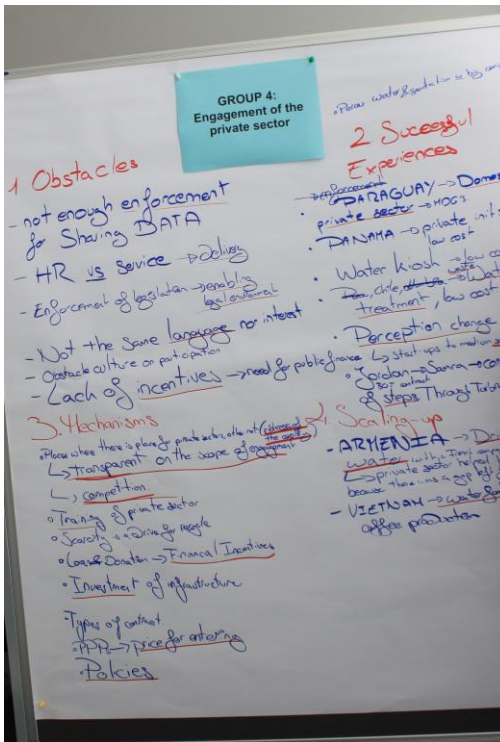 GROUP 4:
Engagement of the
private sector
1 Obstacles
- not enough enforcement
for Sharing DATA
- HR vs service → Delivery
- Enforcement of legislation → enabling
legal environment
- Not the same language nor interest
- Obstacle culture on participation
- Lack of incentives → need for public finance
3. Mechanisms
Places where there is place for private sector, other not
↳ transparent on the scope of engagement
↳ competition.
• Training of private sector
• Scarcity is a Drive for
• Donation → Financial Incentives
• Investment of infrastructure
• Types of contract
• PPPs → price for entering
• Policies
2 Successful
Experiences
enforcement
• PARAGUAY → Domes
private sector → MDGs
• PANAMA → private init
low cost
• Water Kiosk → low co
chile, waste Wat
treatment, low cost
• Perception change
↳ start ups to
• Jordan →
of steps Through
4. Scaling-up
- ARMENIA → Dri
water with
↳ private sector
because there was a gap
- VIETNAM → water for
coffee production